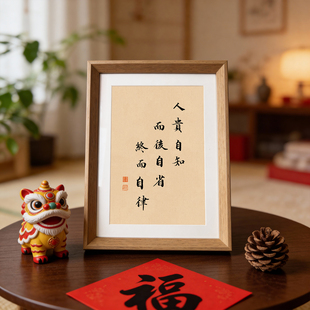 人貴自知
而後自省
終而自律
福